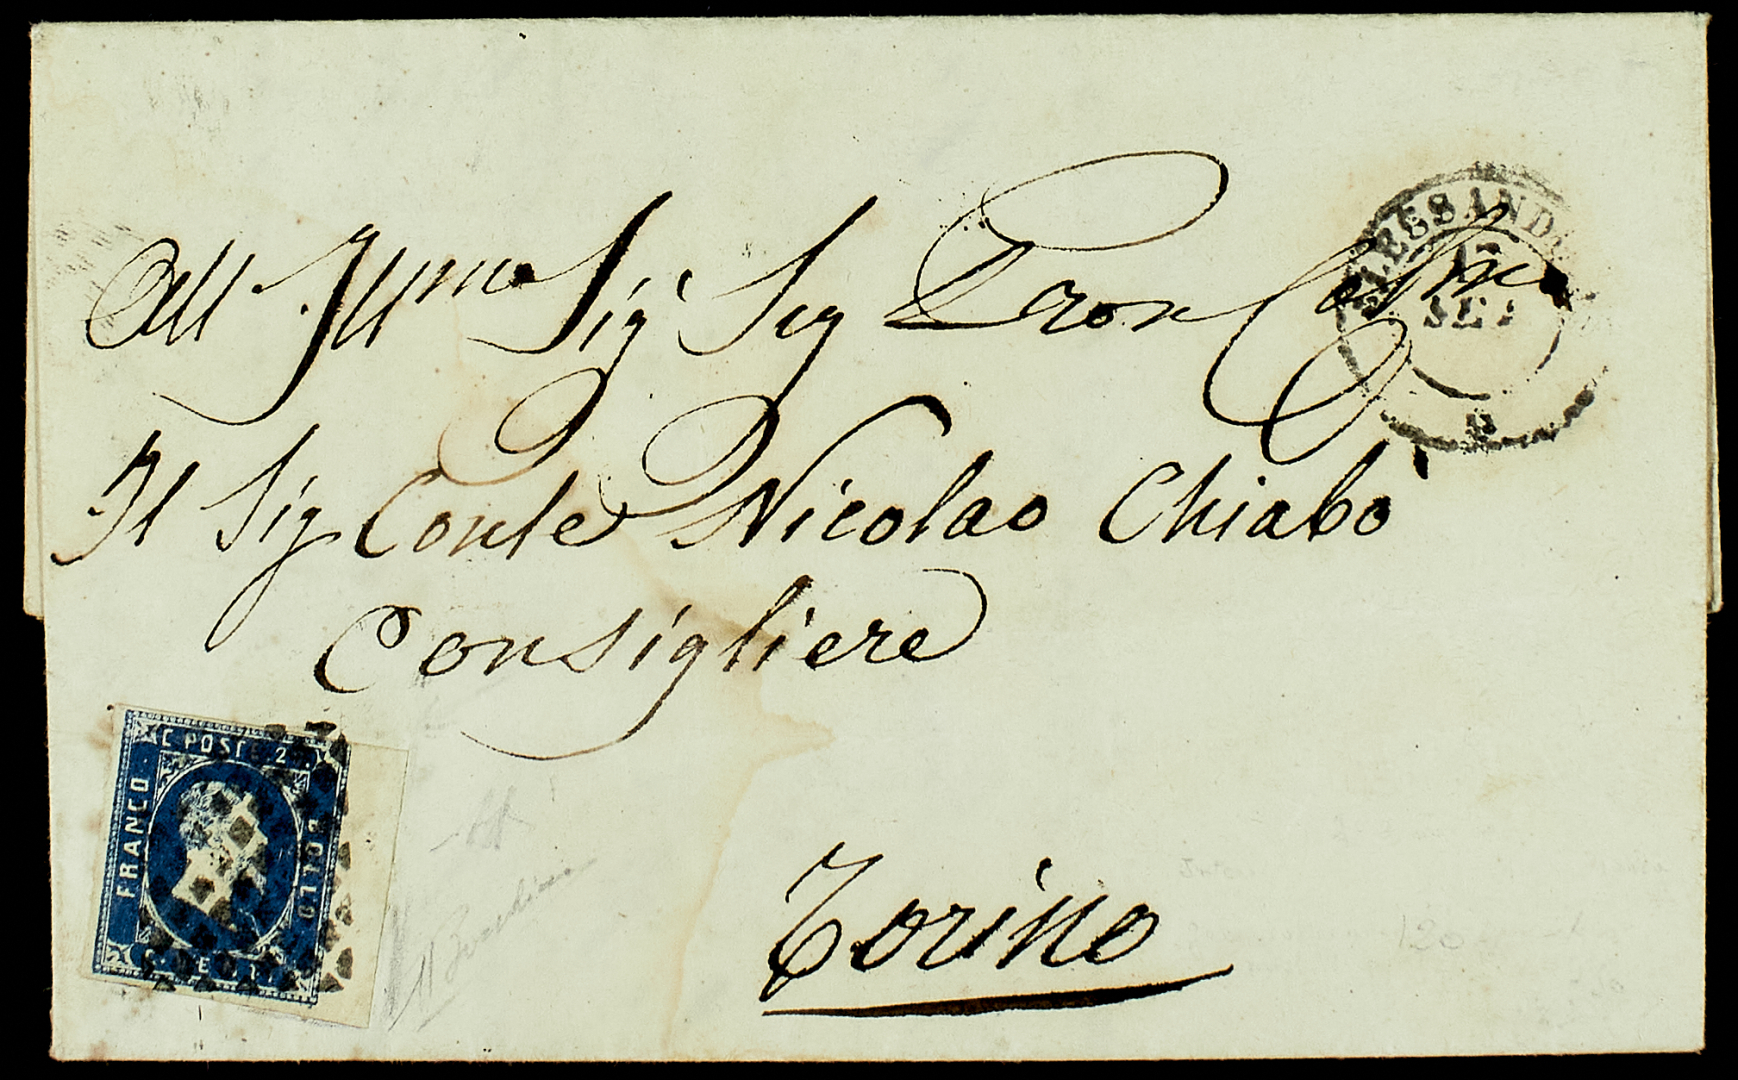 All' Ill.mo Sig Sig Pron Colmo
Il Sig Conte Nicolao Chiabò
Consigliere
Torino
ALESSANDR
17
SET
C. POSTE 20
FRANCO
BOLLO
120